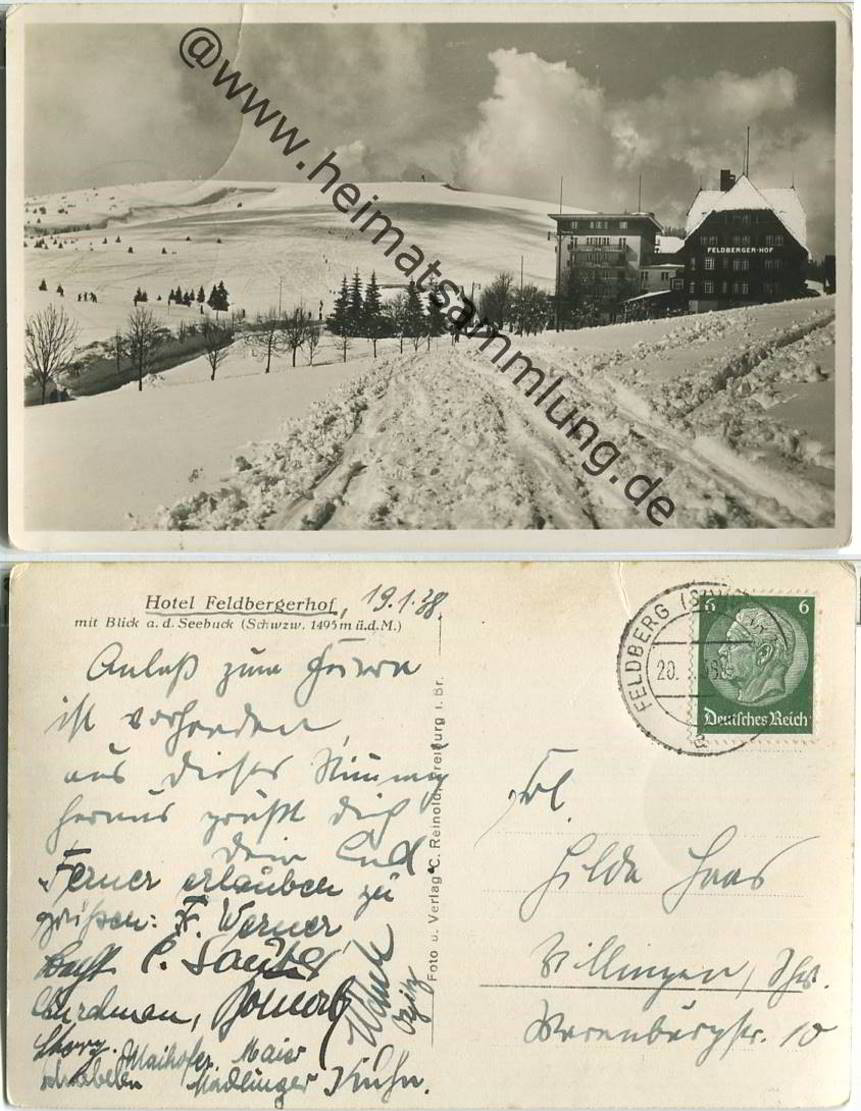 @www.heimatsammlung.de
FELDBERGER-HOF
Hotel Feldbergerhof, 19.1.38.
mit Blick a. d. Seebuck (Schwzw. 1495 m ü.d.M.)
Anlaß zum Feiern
ist vorhanden,
aus dieser Stimmung
heraus grüßt dich
dein
Ferner erlauben zu
grüßen: F. Werner,
Maihofer. Maier
Madlinger Kuhn.
Foto u. Verlag C. Reinold, Freiburg i. Br.
FELDBERG
20.
6 6
Deutsches Reich
Frl.
Hilda Haas
Villingen, Schw.
10